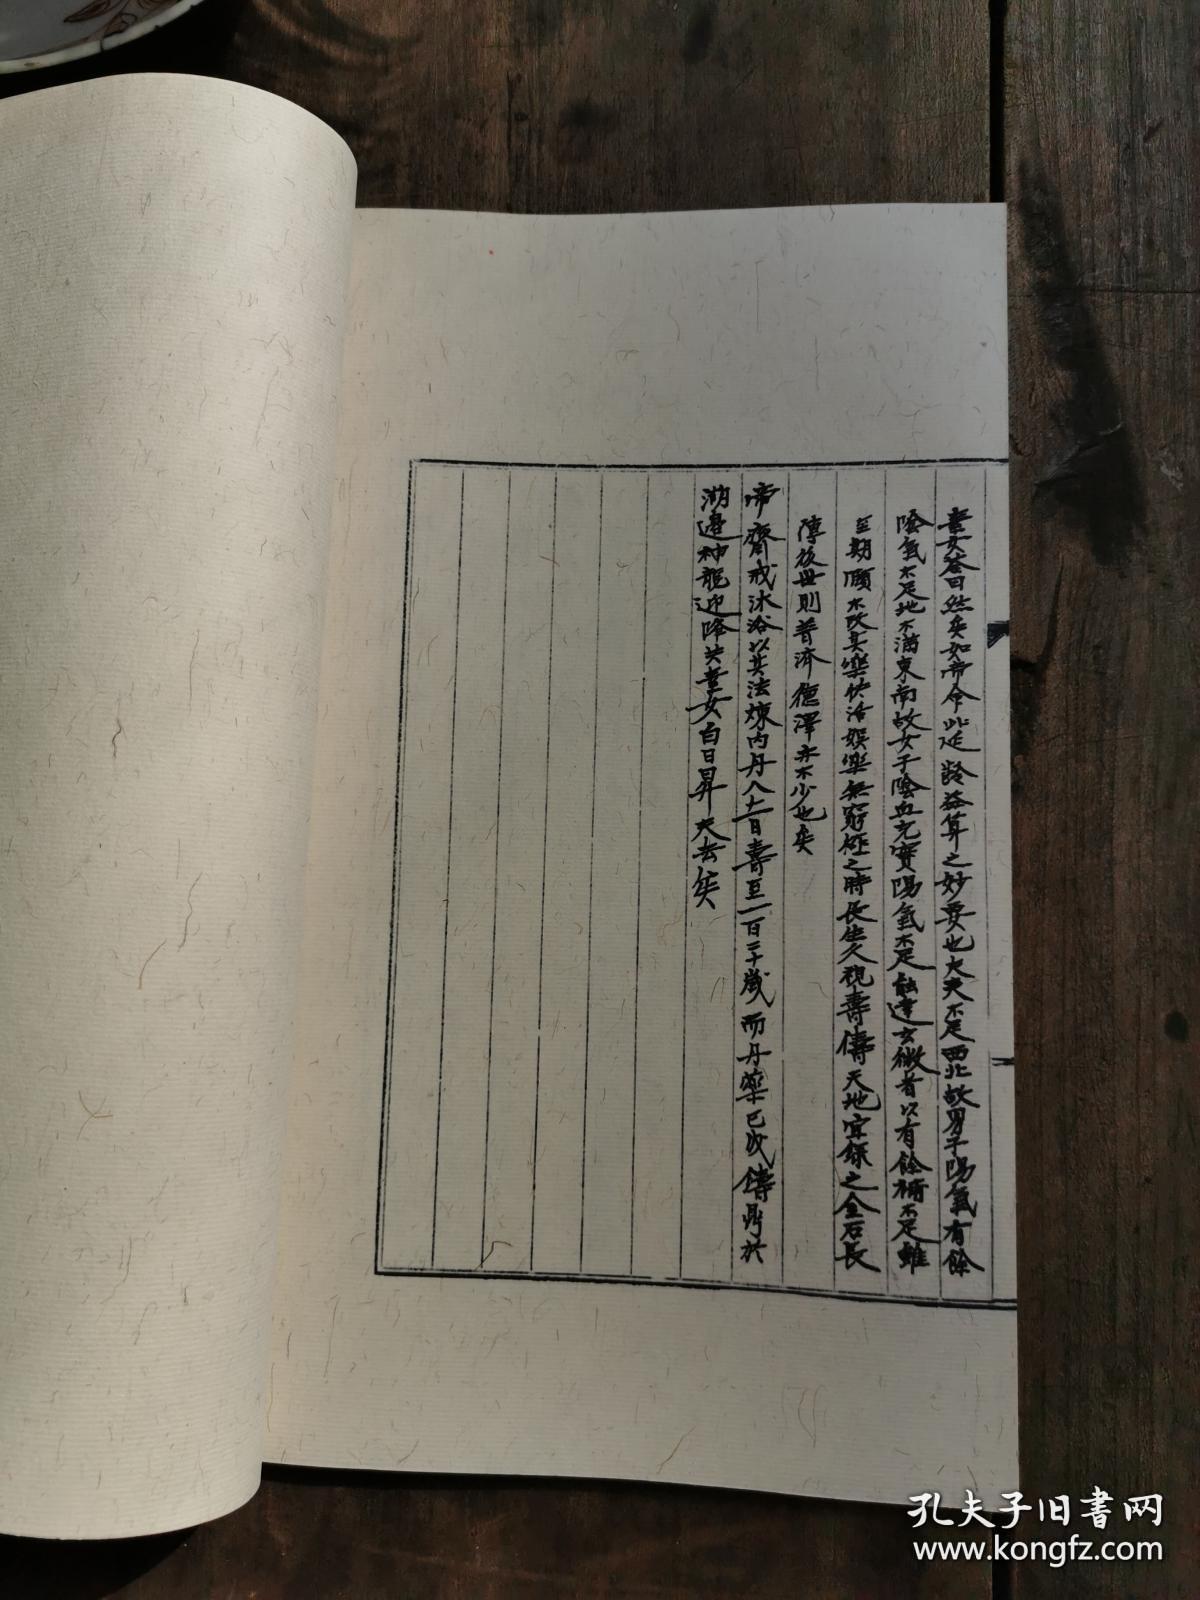 素女答曰然矣如帝令此延齡益算之妙要也大夫不足西北故男子陽氣有餘
陰氣不足地不滿東南故女子陰血充實陽氣不足能達玄微者以有餘補不足雖
至期頤不改其樂快活娛樂無窮極之時長生久視壽儔天地宜錄之金石長
傳後世則普濟德澤亦不少也矣
帝齋戒沐浴以其法煉內丹八十一日壽至一百二十歲而丹藥已成鑄鼎於
湖邊神龍迎降共素女白日昇天去矣
孔夫子旧書网
www.kongfz.com